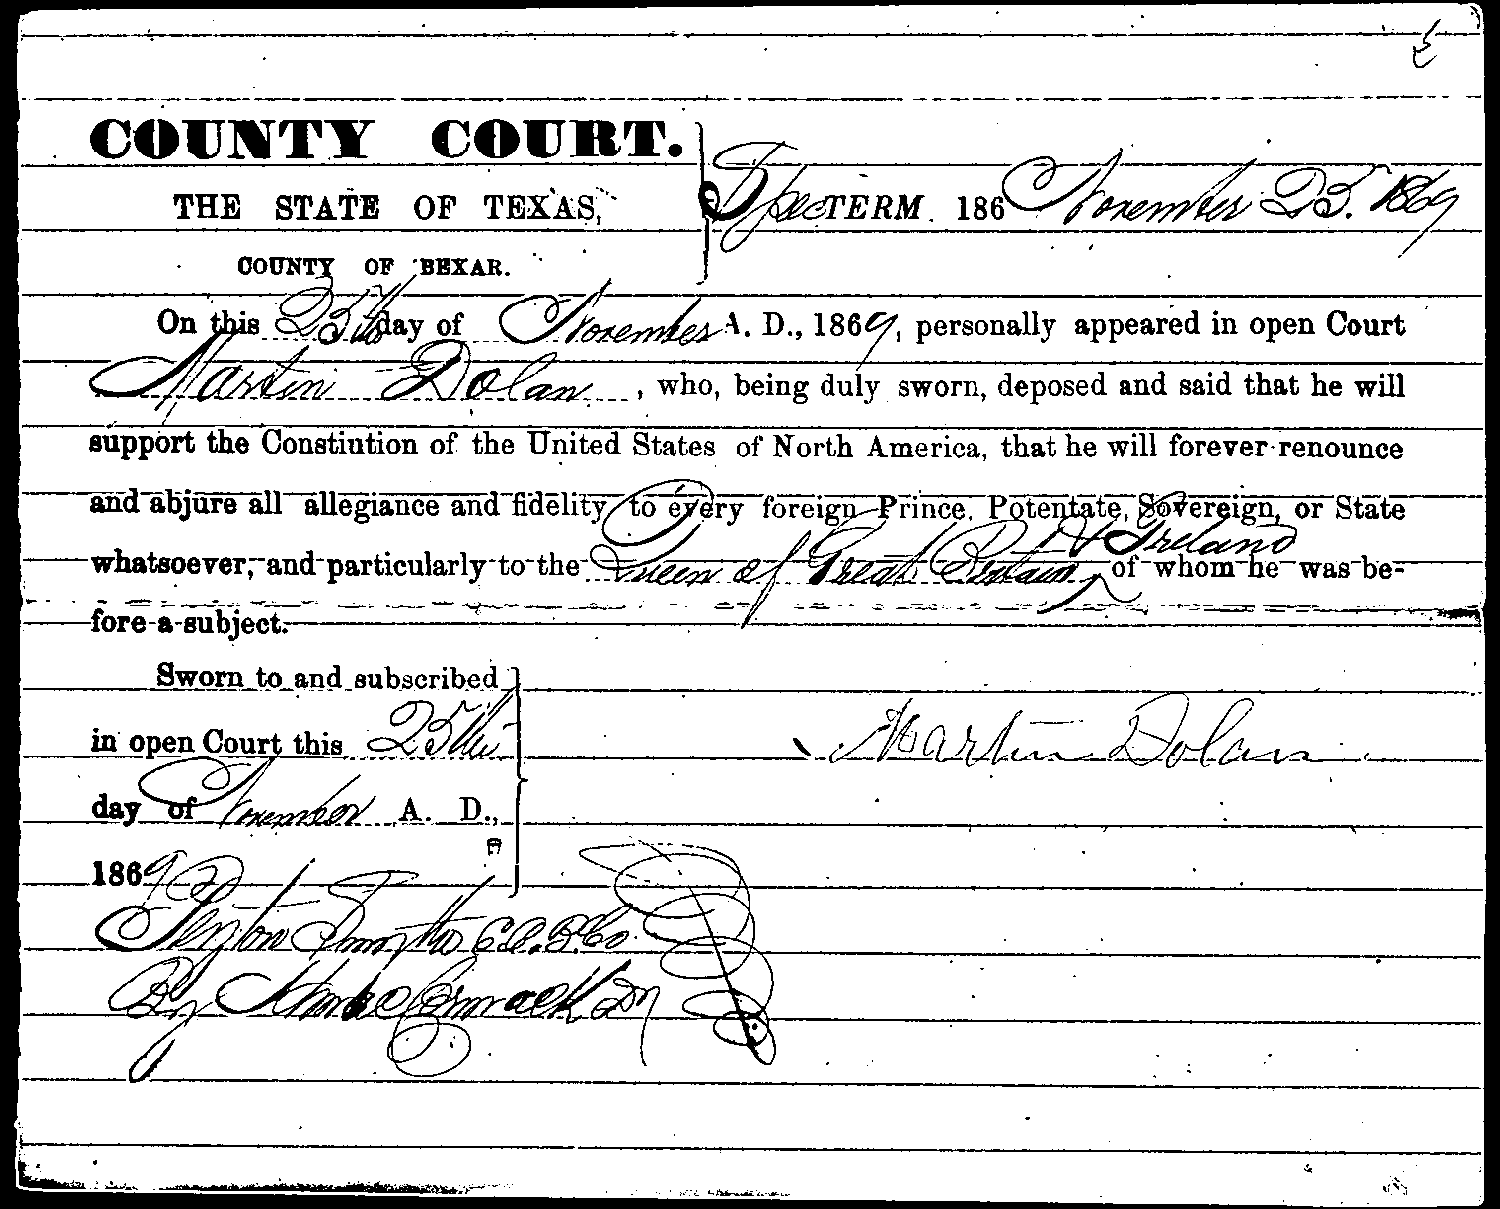 COUNTY COURT.
THE STATE OF TEXAS,
COUNTY OF BEXAR.
Spec TERM. 186 November 25. 1869
On this 25th day of November A. D., 1869, personally appeared in open Court
Martin Dolan, who, being duly sworn, deposed and said that he will
support the Constiution of the United States of North America, that he will forever renounce
and abjure all allegiance and fidelity to every foreign Prince, Potentate, Sovereign, or State
whatsoever, and particularly to the Queen of Great Britain & Ireland of whom he was be-
fore a subject.
Sworn to and subscribed
in open Court this 25th
day of November A. D.,
1869
Martin Dolan
Peyton Smythe C.C.B.Co.
By McCormack Dy